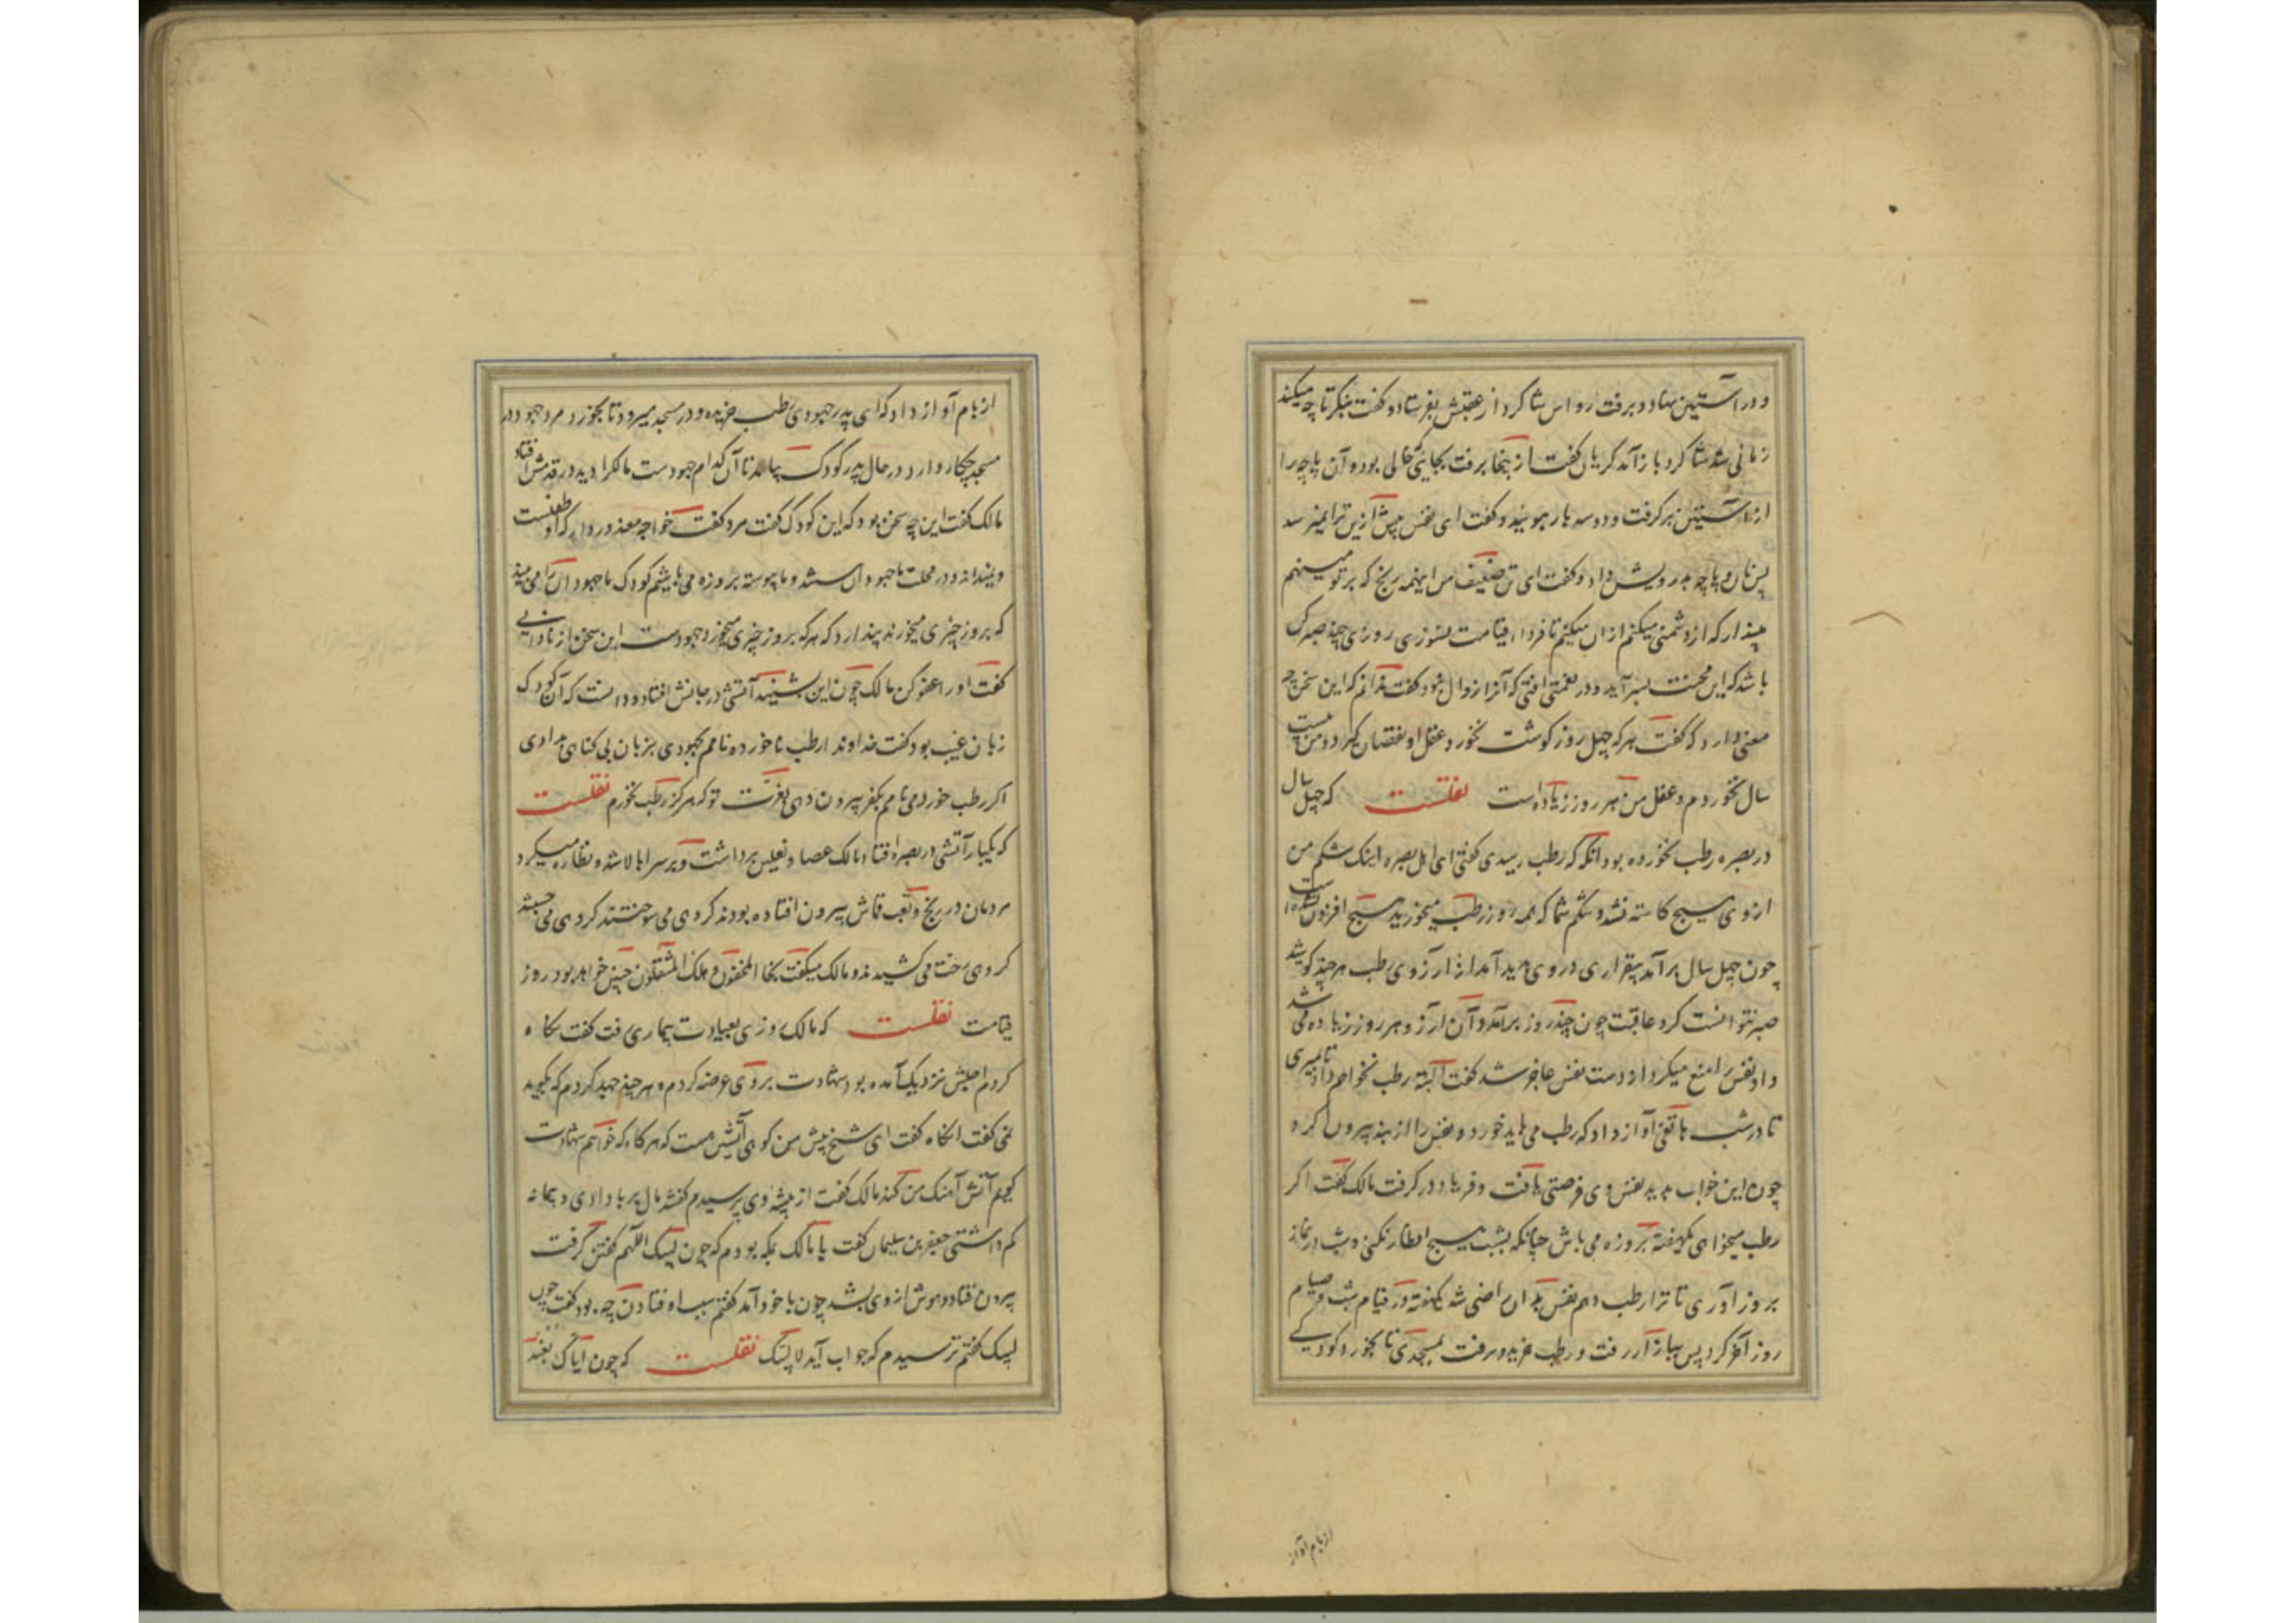 و در آستین نهاد و برفت رواس شاکرد از عقبش بفرستاد و کفت بنکر تا چه میکند
زمانی شد شاکرد باز آمد کریان کفت از ینجا برفت بجایی خالی بود و آن پاچه را
از آستین برکرفت و دو سه بار ببویید و کفت ای نفس بیش ازین ترا نمیرسد
پس نان و پاچه بدرویش داد و کفت ای تن ضعیف من اینهمه رنج که بر تو مینهم
مپندار که از دشمنی میکنم از ان میکنم تا فردا قیامت نسوزی روزی چند صبر کن
باشد که این محنت بسر آید و در نعمتی افتی که آنرا زوال نبود کفت ندانم که این سخن چه
معنی دارد که کفت هر که چهل روز کوشت نخورد عقل او نقصان کیرد و من بیست
سال نخوردم و عقل من هر روز زیاده است نقلست که چهل سال
در بصره رطب نخورده بود آنکه که رطب رسیدی کفتی ای اهل بصره اینک شکم من
از وی هیچ کاسته نشد و شکم شما که همه روز رطب میخورید هیچ افزون نشده است
چون چهل سال بر آمد بیقراری در وی پدید آمد از آرزوی رطب هر چند کوشید
صبر نتوانست کرد عاقبت چون چند روز برآمد و آن آرزو هر روز زیاده می شد
و او نفس را منع میکرد از دست نفس عاجز شد کفت البته رطب نخواهم داد تا بمیری
تا در شب هاتفی آواز داد که رطب می باید خورد و نفس را از بند بیرون کرد
چون این خواب بدید نفس وی فرصتی یافت و فریاد در کرفت مالک کفت اکر
رطب میخواهی یکهفته بروزه می باش چنانکه بشب هیچ افطار نکنی و شب در نماز
بروز آوری تا ترا رطب دهم نفس بدان راضی شد یکهفته در قیام شب و صیام
روز آخر کرد پس ببازار رفت و رطب خرید و برفت بمسجدی تا بخورد کودکی
از بام آواز
از بام آواز داد که ای پدر جهودی رطب خریده و در مسجد میرود تا بخورد مرد جهود در
مسجد چکار دارد در حال پدر کودک بیامد تا آن کدام جهودست مالک را دید در قدمش افتاد
مالک کفت این چه سخن بود که این کودک کفت مرد کفت خواجه معذور دار که او طفلست
و نمیداند و در محلت ما جهودان باشند و ما پیوسته بروزه می باشیم کودک ما جهودان را می بیند
که بروز چیزی میخورند پندارد که هر که بروز چیزی میخورد جهودست این سخن از نادانی
کفت او را عفو کن مالک چون این بشنید آتشی در جانش افتاد و دانست که آن کودک
زبان غیب بود کفت خداوندا رطب ناخورده نامم بجهودی بزبان بی کناهی بدادی
اکر رطب خوردمی نامم بکفر بیرون دهی بعزت تو که هرکز رطب نخورم نقلست
که یکبار آتشی در بصره افتاد مالک عصا و نعلین برداشت و بر سر بالا شد و نظاره میکرد
مردمان در رنج و تعب قماش بیرون افتاده بودند کروهی می سوختند کروهی می جستند
کروهی رخت می کشیدند و مالک میکفت نجا المخفون و هلک المثقلون چنین خواهد بود روز
قیامت نقلست که مالک روزی بعیادت بیماری رفت کفت نکاه
کردم اجلش نزدیک آمده بود شهادت بر وی عرضه کردم و هر چند جهد کردم که بکوید
نمی کفت آنکاه کفت ای شیخ پیش من کوهی آتشین هست که هر کاه که خواهم شهادت
کویم آتش آهنک من کند مالک کفت از پیشه وی پرسیدم کفتند مال بربا دادی و پیمانه
کم داشتی جعفر بن سلیمان کفت با مالک بمکه بودم که چون لبیک اللهم کفتن کرفت
بیرون افتاد و هوش از وی بشد چون با خود آمد کفتم سبب افتادن چه بود کفت چون
لبیک کفتم ترسیدم که جواب آید لا لبیک نقلست که چون ایاک نعبد